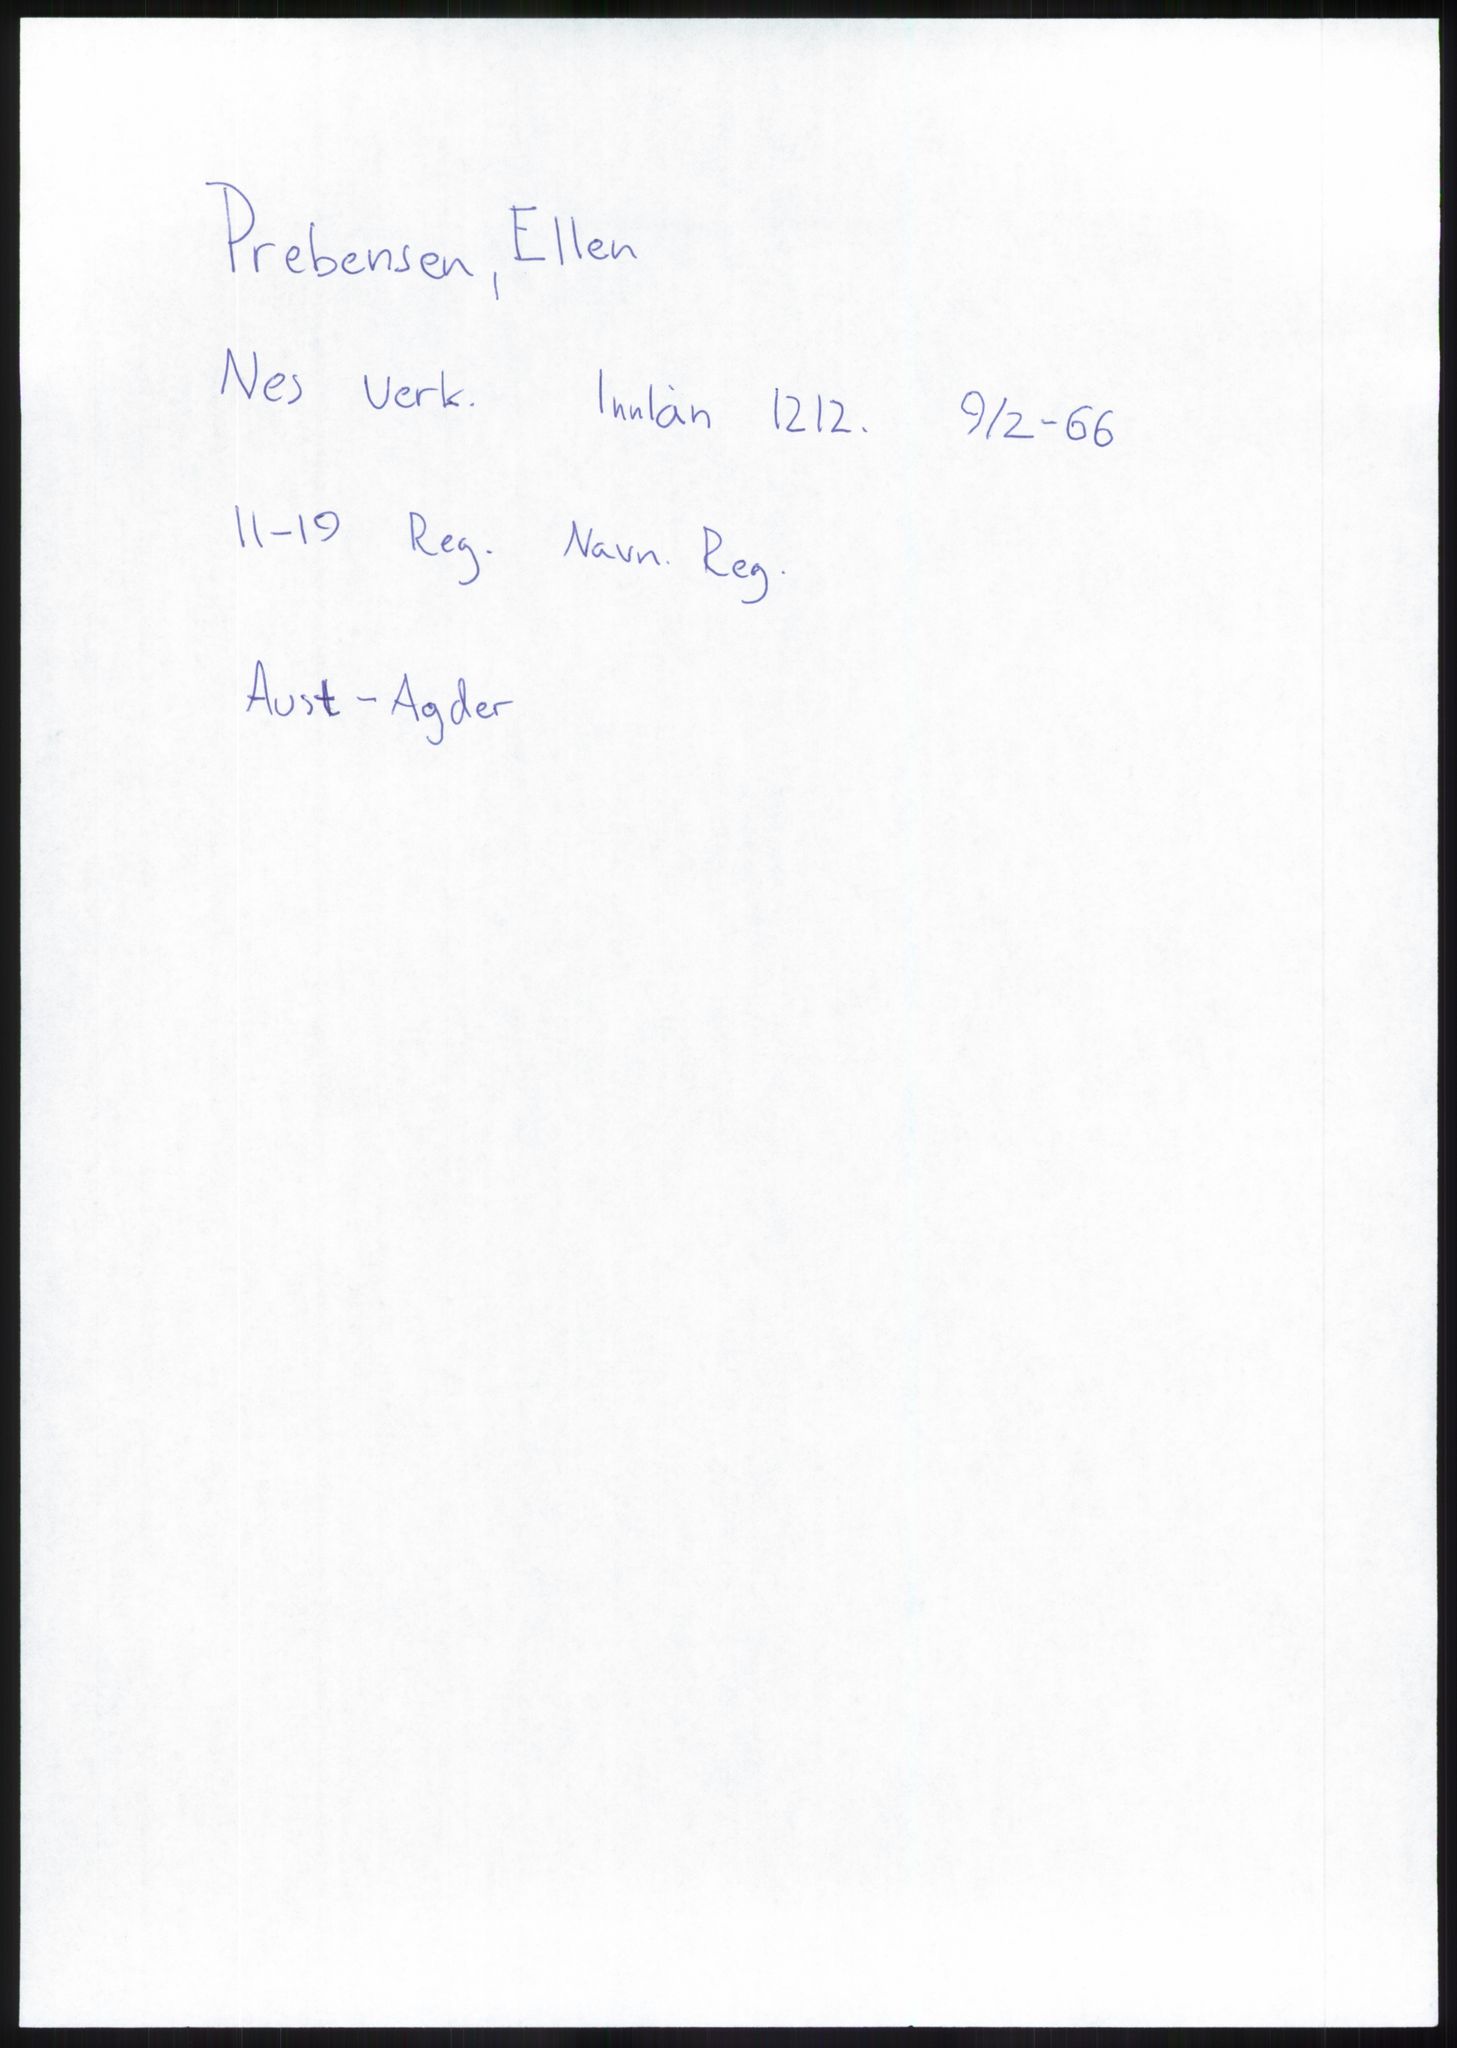 Prebensen, Ellen
Nes verk. Innlån 1212. 9/2-66
11-19 Reg. Navn. Reg.
Aust-Agder